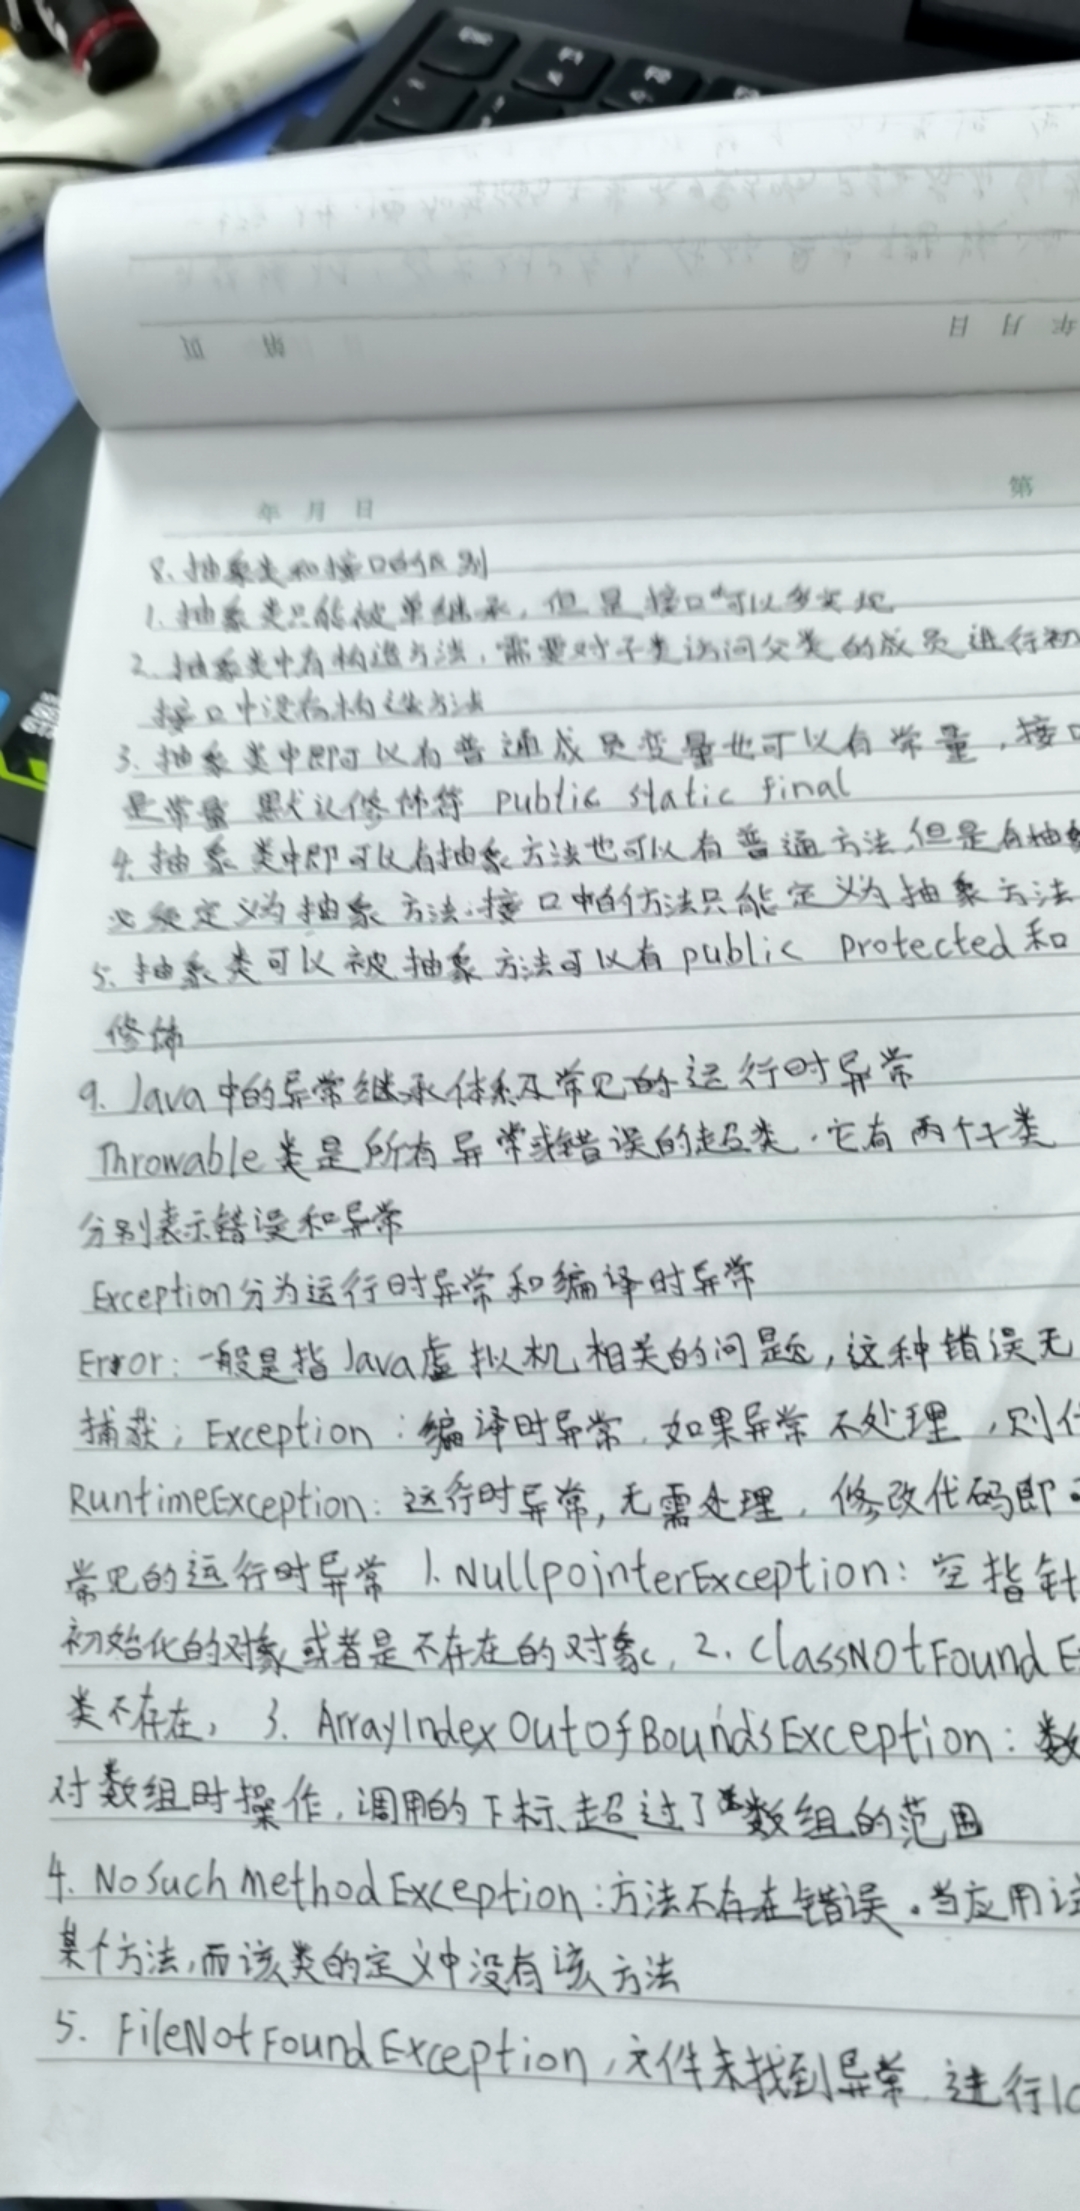 年 月 日
第 页
年 月 日
第
8. 抽象类和接口的区别
1. 抽象类只能被单继承, 但是接口可以多实现
2. 抽象类中有构造方法, 需要对子类访问父类的成员进行初
接口中没有构造方法
3. 抽象类中即可以有普通成员变量也可以有常量, 接口
是常量 默认修饰符 public static final
4. 抽象类中即可以有抽象方法也可以有普通方法,但是有抽象
必须定义为抽象方法.接口中的方法只能定义为抽象方法
5. 抽象类可以被抽象方法可以有public protected和
修饰
9. Java中的异常继承体系及常见的运行时异常
Throwable类是所有异常或错误的超类.它有两个子类
分别表示错误和异常
Exception分为运行时异常和编译时异常
Error: 一般是指Java虚拟机相关的问题,这种错误无
捕获; Exception:编译时异常.如果异常不处理,则代
RuntimeException: 运行时异常,无需处理,修改代码即
常见的运行时异常 1.NullpointerException: 空指针
初始化的对象或者是不存在的对象. 2. ClassNotFoundEx
类不存在, 3. ArrayIndexOutofBoundsException: 数
对数组时操作,调用的下标超过了数组的范围
4. NoSuchmethodException:方法不存在错误.当应用试
某个方法,而该类的定义中没有该方法
5. FileNotFoundException,文件未找到异常.进行IO